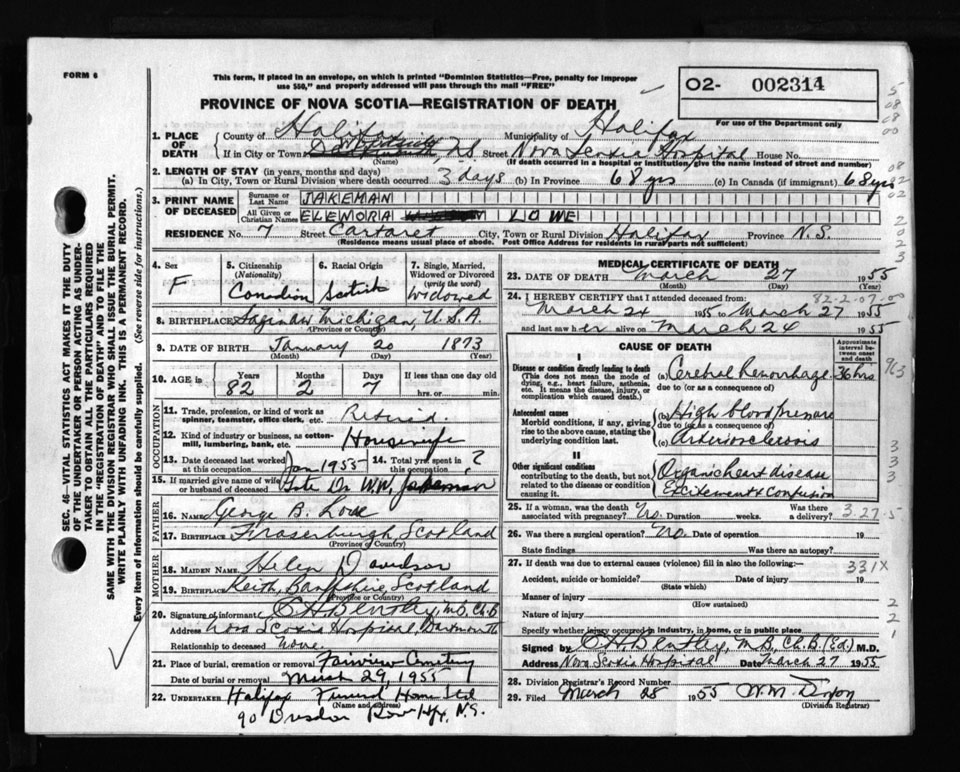 FORM 6
This form, if placed in an envelope, on which is printed "Dominion Statistics—Free, penalty for improper
use $50," and properly addressed will pass through the mail "FREE"
02- 002314
For use of the Department only
PROVINCE OF NOVA SCOTIA—REGISTRATION OF DEATH
1. PLACE OF DEATH
County of Halifax Municipality of Halifax
If in City or Town NS Street Nova Scotia Hospital House No.
(Name) (If death occurred in a hospital or institution, give the name instead of street and number)
2. LENGTH OF STAY (in years, months and days)
(a) In City, Town or Rural Division where death occurred 3 days (b) In Province 68 yrs (c) In Canada (if immigrant) 68 yrs
3. PRINT NAME OF DECEASED
Surname or Last Name JAKEMAN
All Given or Christian Names ELENORA LOWE
RESIDENCE No. 7 Street Cartaret City, Town or Rural Division Halifax Province N.S.
(Residence means usual place of abode. Post Office Address for residents in rural parts not sufficient)
4. Sex
F
5. Citizenship (Nationality)
Canadian
6. Racial Origin
Scottish
7. Single, Married, Widowed or Divorced (write the word)
Widowed
8. BIRTHPLACE Saginaw Michigan, U.S.A.
(Province or County)
9. DATE OF BIRTH January 20 1873
(Month) (Day) (Year)
10. AGE in Years Months Days If less than one day old
82 2 7 hrs. or min.
OCCUPATION
11. Trade, profession, or kind of work as spinner, teamster, office clerk, etc. Retired
12. Kind of industry or business, as cotton-mill, lumbering, bank, etc. Housewife
13. Date deceased last worked at this occupation Jan 1955 14. Total yrs. spent in this occupation ?
15. If married give name of wife or husband of deceased Late Dr W.W. Jakeman
FATHER
16. NAME George B. Lowe
17. BIRTHPLACE Fraserburgh, Scotland
(Province or Country)
MOTHER
18. MAIDEN NAME Helen Davidson
19. BIRTHPLACE Keith, Banffshire, Scotland
(Province or Country)
20. Signature of informant M.B. Ch.B
Address Nova Scotia Hospital, Dartmouth
Relationship to deceased None.
21. Place of burial, cremation or removal Fairview Cemetery
Date of burial or removal March 29, 1955
22. UNDERTAKER Halifax Funeral Home Ltd
(Name and address)
90 Row Hfx, N.S.
MEDICAL CERTIFICATE OF DEATH
23. DATE OF DEATH March 27 1955
(Month) (Day) (Year)
24. I HEREBY CERTIFY that I attended deceased from: 82-2-07-00
March 24 1955 to March 27 1955
and last saw her alive on March 24 1955
CAUSE OF DEATH
Approximate interval between onset and death
I
Disease or condition directly leading to death
(This does not mean the mode of dying, e.g., heart failure, asthenia, etc. It means the disease, injury, or complication which caused death.)
(a) Cerebral Hemorrhage 36 hrs
due to (or as a consequence of)
Antecedent causes
Morbid conditions, if any, giving rise to the above cause, stating the underlying condition last.
(b) High blood pressure
due to (or as a consequence of)
(c) Arteriosclerosis
II
Other significant conditions
contributing to the death, but not related to the disease or condition causing it.
Organic heart disease
Excitement & Confusion
25. If a woman, was the death associated with pregnancy? No. Duration weeks. Was there a delivery?
3-27-5
26. Was there a surgical operation? No. Date of operation 19
State findings Was there an autopsy?
27. If death was due to external causes (violence) fill in also the following:
331X
Accident, suicide or homicide? Date of injury 19
(State which)
Manner of injury
(How sustained)
Nature of injury
Specify whether injury occurred in industry, in home, or in public place
Signed by M.B., Ch.B. (Ed.) M.D.
Address Nova Scotia Hospital Date March 27 1955
28. Division Registrar's Record Number
29. Filed March 28 1955
(Division Registrar)
SEC. 46—VITAL STATISTICS ACT MAKES IT THE DUTY
OF THE UNDERTAKER OR PERSON ACTING AS UNDERTAKER TO OBTAIN ALL THE PARTICULARS REQUIRED
IN THE "REGISTRATION OF DEATH" AND TO FILE THE
SAME WITH THE DIVISION REGISTRAR WHO SHALL ISSUE THE BURIAL PERMIT.
WRITE PLAINLY WITH UNFADING INK. THIS IS A PERMANENT RECORD.
Every item of information should be carefully supplied. (See reverse side for instructions.)